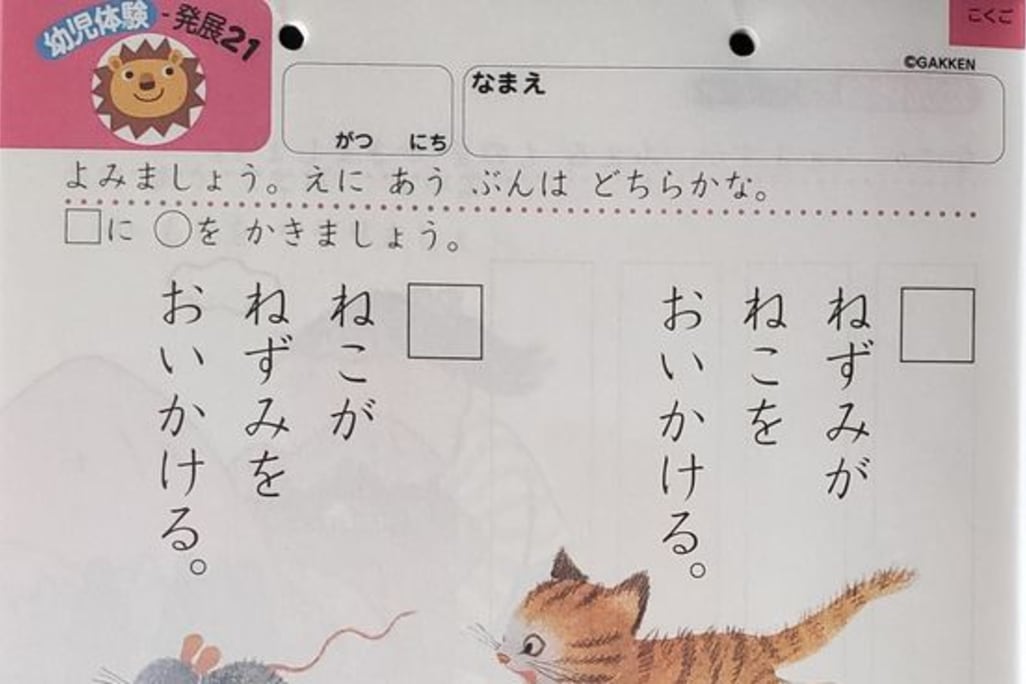 幼児体験 - 発展21
こくご
©GAKKEN
がつ にち
なまえ
よみましょう。えに あう ぶんは どちらかな。
□に ○を かきましょう。
ねずみが
ねこを
おいかける。
ねこが
ねずみを
おいかける。